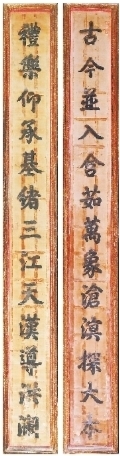 古今並入含茹萬象滄溟探大本
禮樂仰承基緒三江天漢導洪瀾